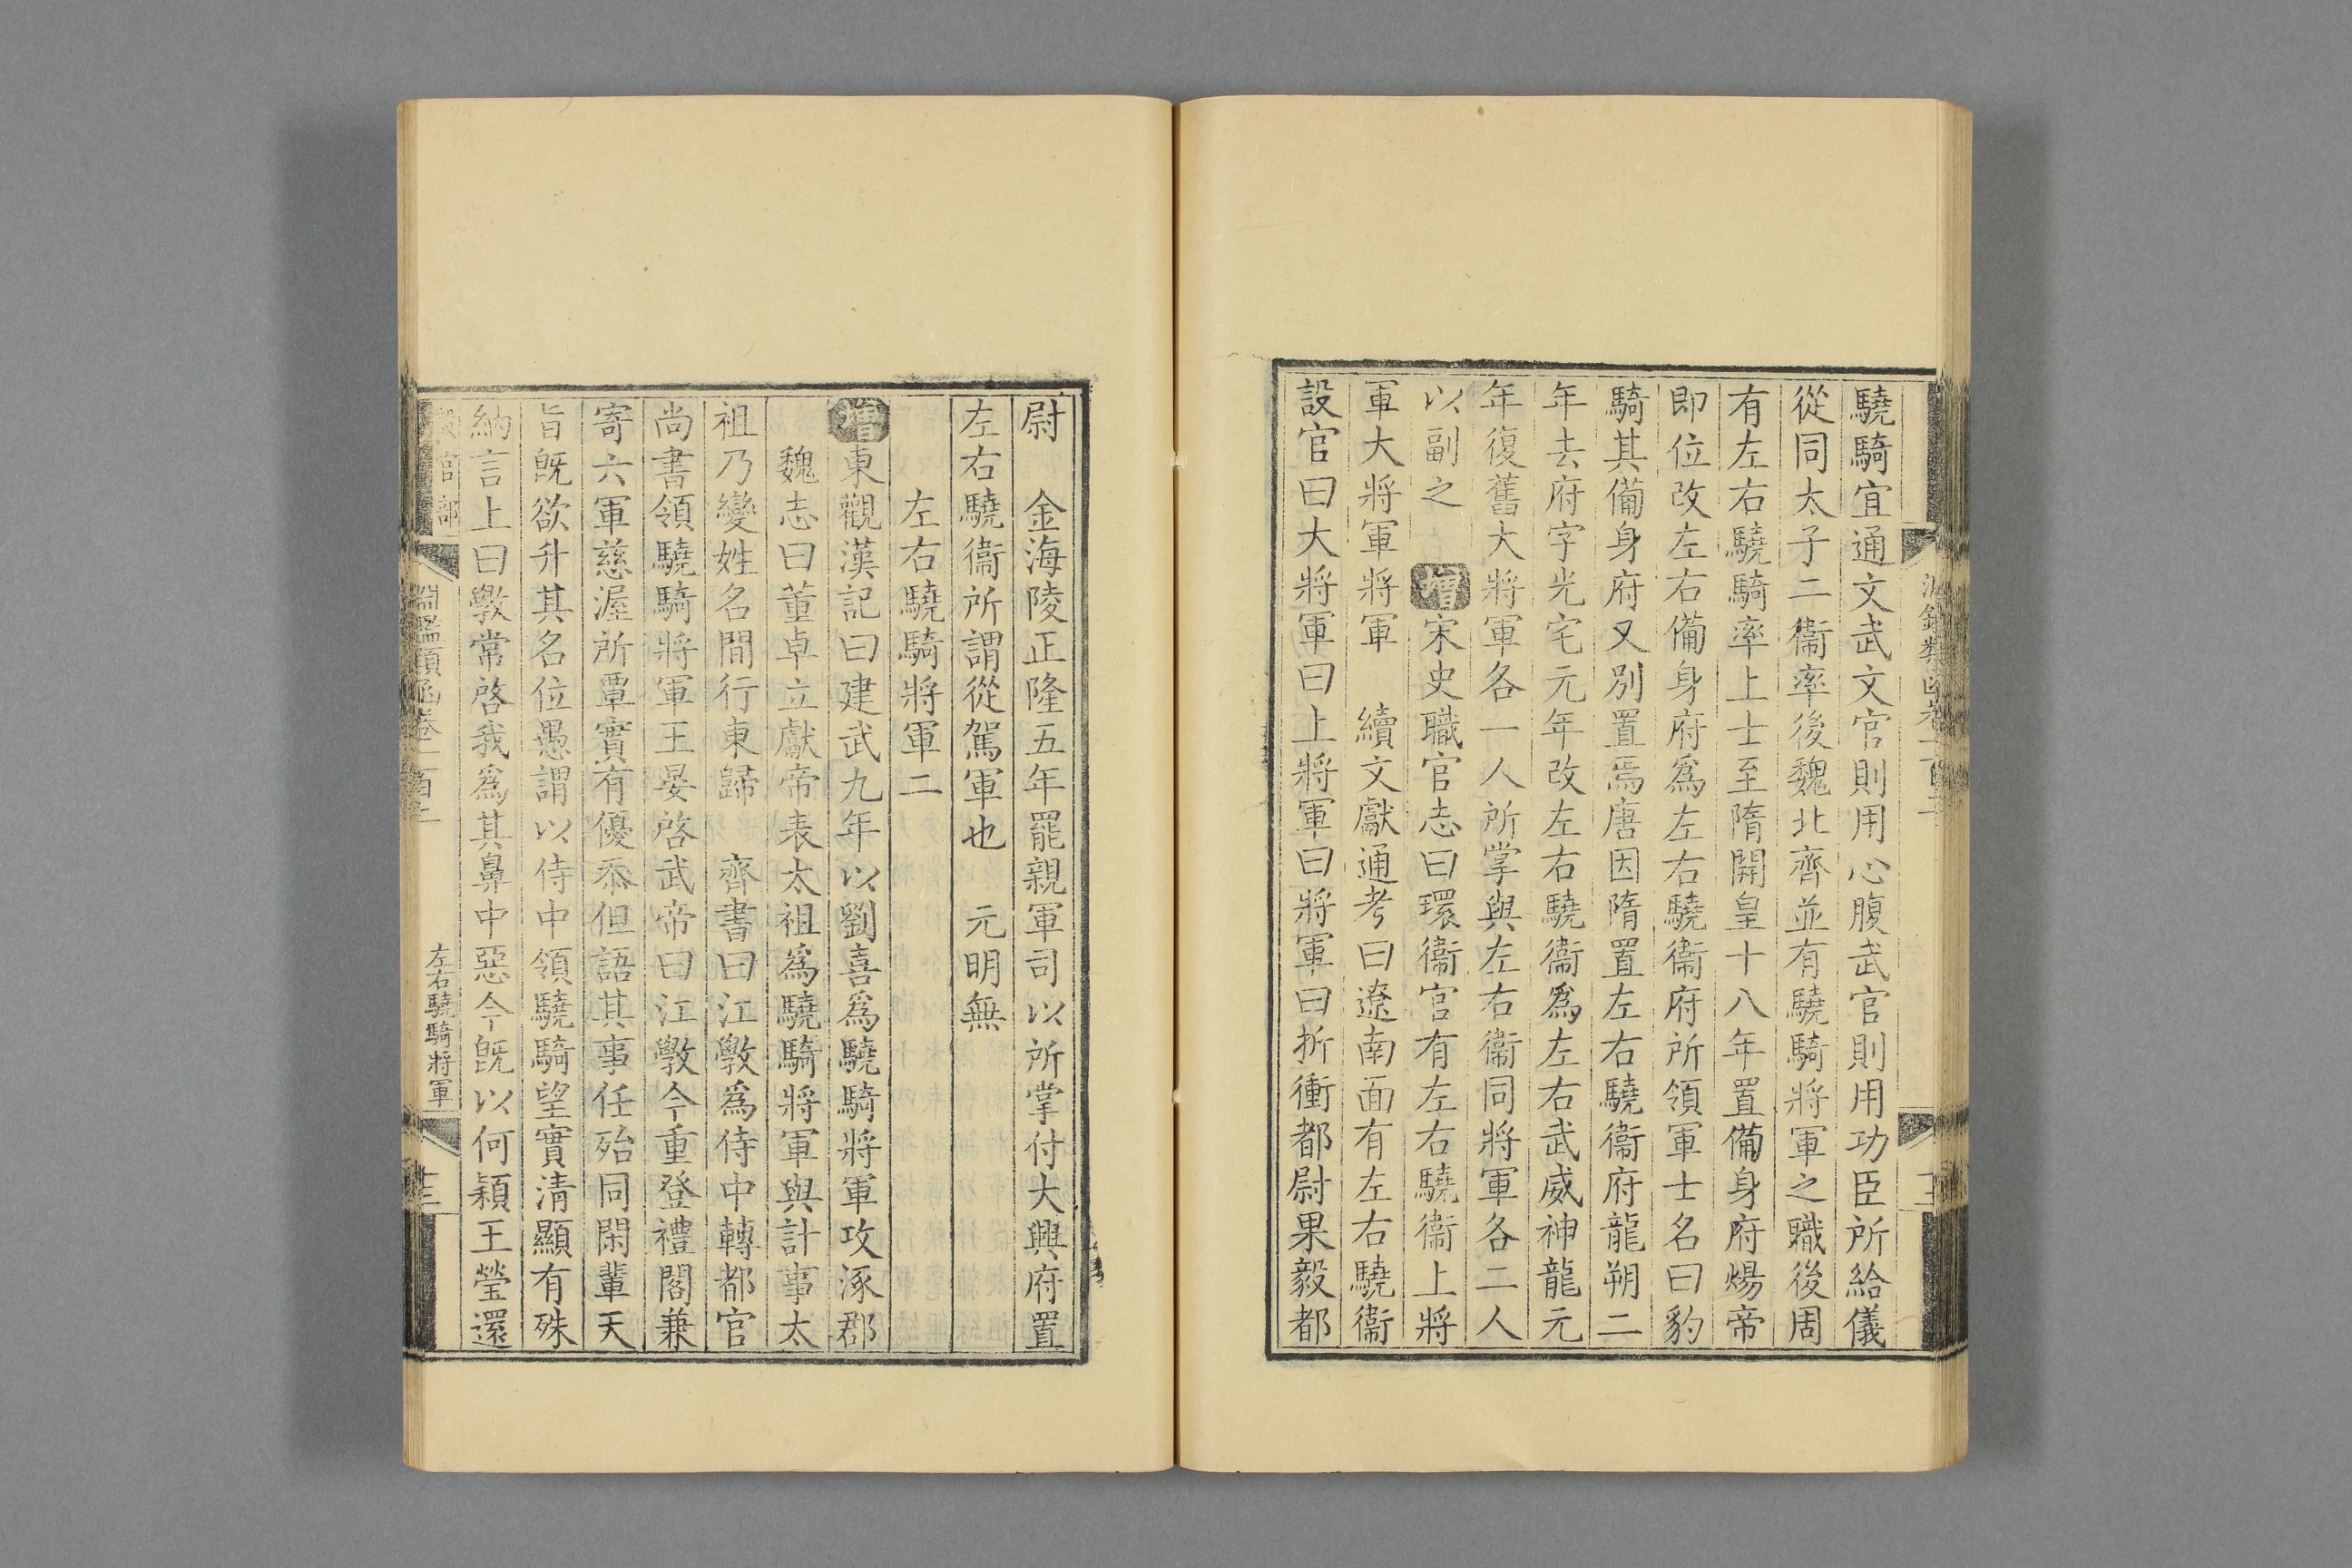 驍騎宜通文武文官則用心腹武官則用功臣所給儀
從同太子二衞率後魏北齊並有驍騎將軍之職後周
有左右驍騎率上士至隋開皇十八年置備身府煬帝
即位改左右備身府爲左右驍衞府所領軍士名曰豹
騎其備身府又別置焉唐因隋置左右驍衞府龍朔二
年去府字光宅元年改左右驍衞爲左右武威神龍元
年復舊大將軍各一人所掌與左右衞同將軍各二人
以副之 增宋史職官志曰環衞官有左右驍衞上將
軍大將軍將軍 續文獻通考曰遼南面有左右驍衞
設官曰大將軍曰上將軍曰將軍曰折衝都尉果毅都
尉 金海陵正隆五年罷親軍司以所掌付大興府置
左右驍衞所謂從駕軍也 元明無
左右驍騎將軍二
增東觀漢記曰建武九年以劉喜爲驍騎將軍攻涿郡
魏志曰董卓立獻帝表太祖爲驍騎將軍與計事太
祖乃變姓名間行東歸 齊書曰江斆爲侍中轉都官
尚書領驍騎將軍王晏啓武帝曰江斆今重登禮閣兼
寄六軍慈渥所覃實有優忝但語其事任殆同閑輩天
旨旣欲升其名位愚謂以侍中領驍騎望實清顯有殊
納言上曰斆常啓我爲其鼻中惡今旣以何穎王瑩還
設官部
淵鑑類函卷一百二
左右驍騎將軍
十三